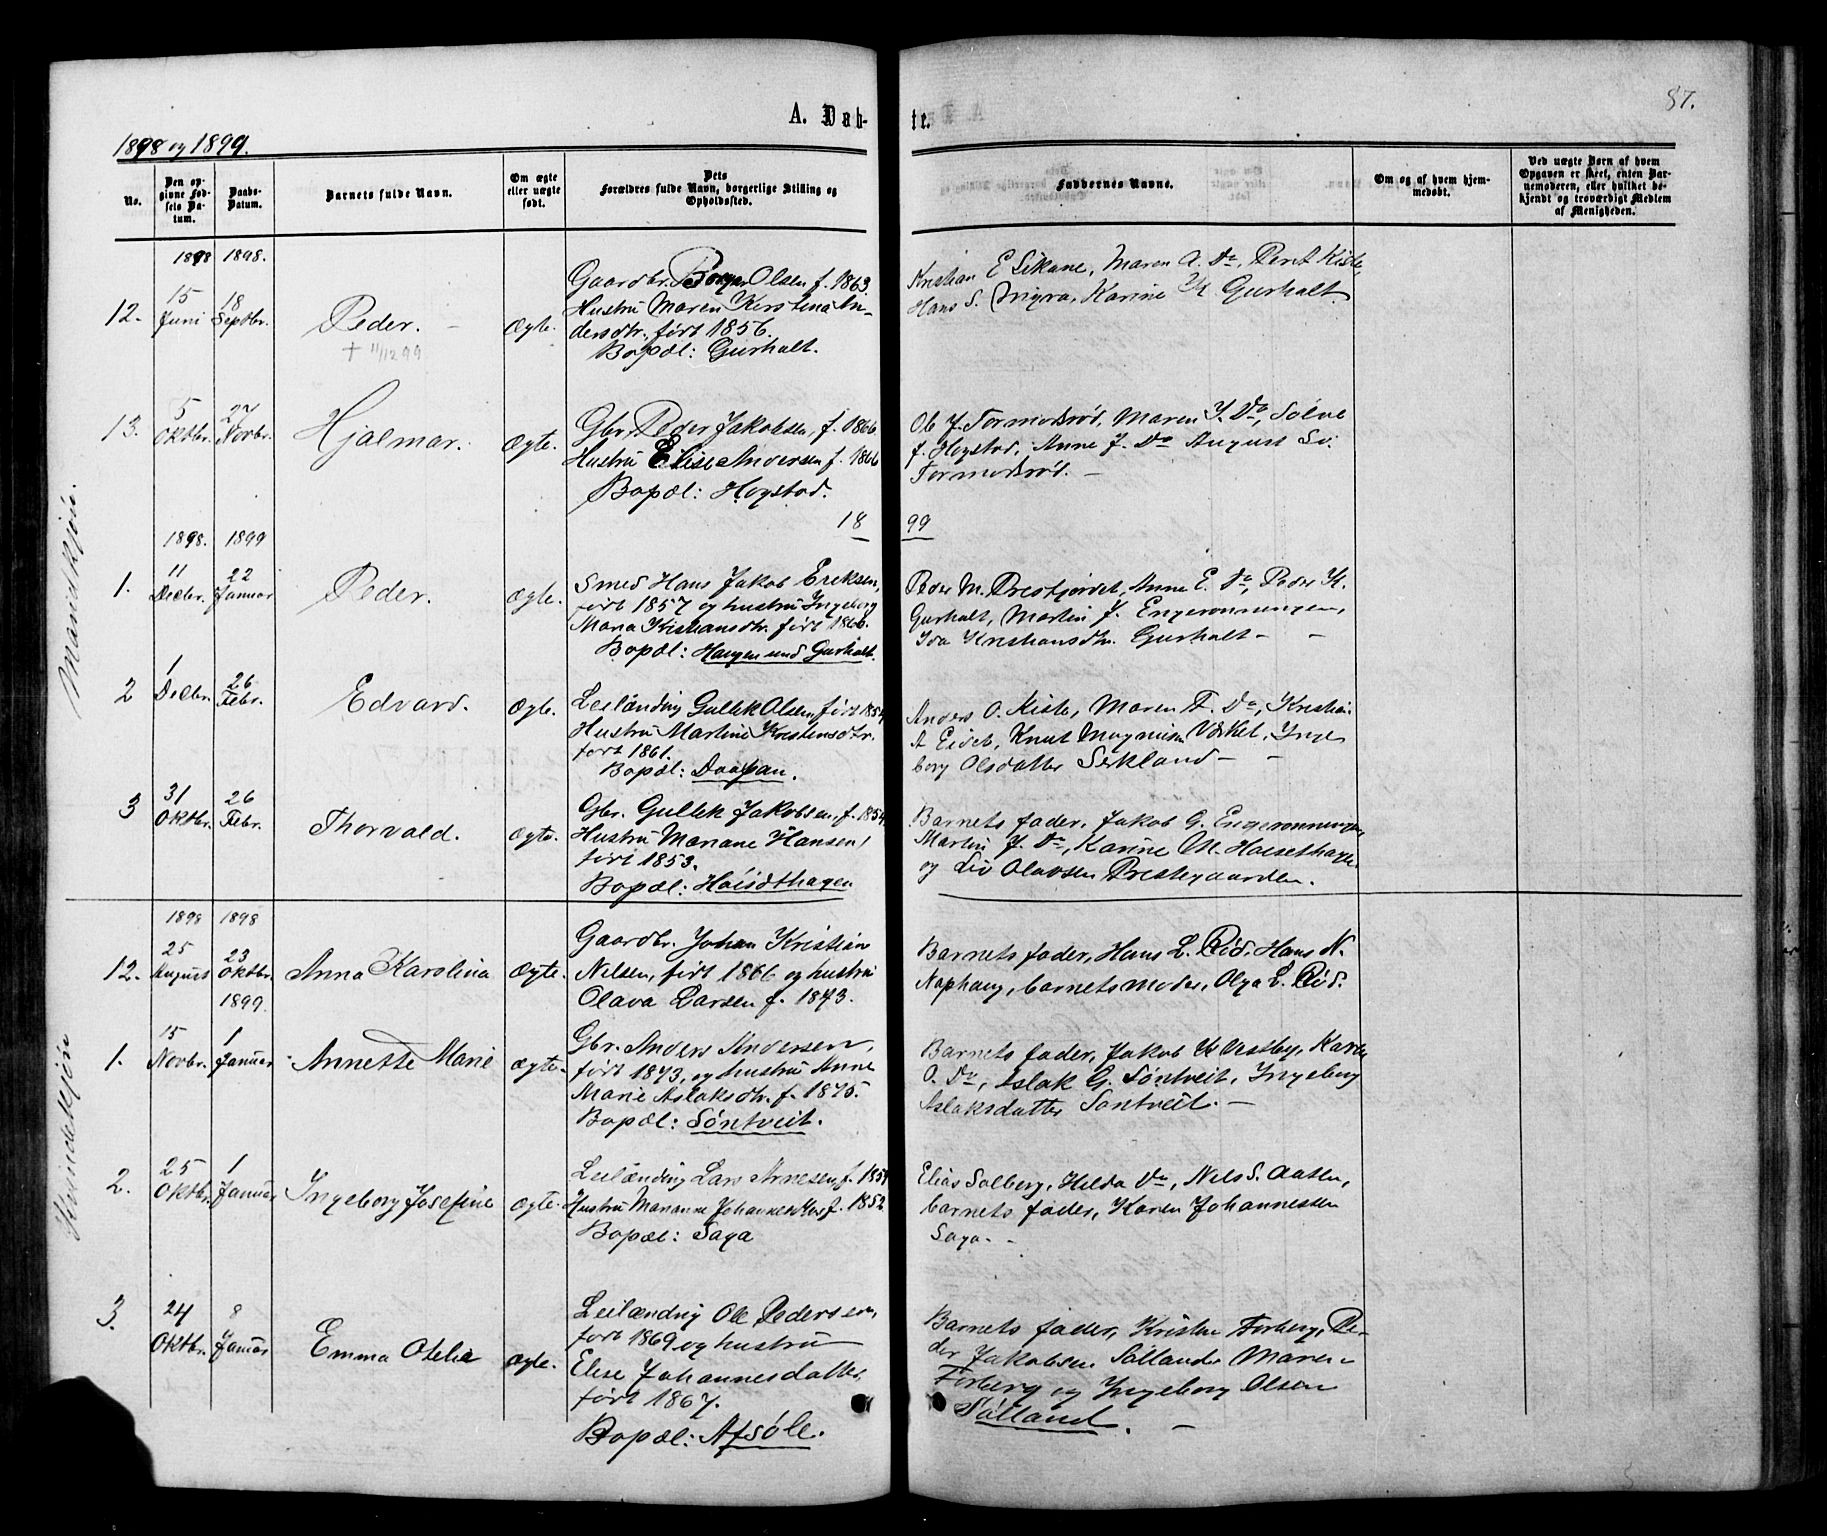 87.
A. Døb-
te.
1898 og 1899.
No.
Den op-
givne Fød-
sels Da-
tum.
Daabs-
Datum.
Barnets fulde Navn.
Om ægte
eller uægte
født.
Dets
Forældres fulde Navn, borgerlige Stilling og
Opholdssted.
Faddernes Navne.
Om og af hvem hjem-
medøbt.
Ved uægte Børn af hvem
Opgaven er skeet, enten Bar-
nemoderen, eller hvilket be-
kjendt og troværdigt Medlem
af Menigheden.
Mandkjøn.
1898 1898.
12. 15 Juni 18 Septbr. Peder. Ægte.
+ 11/12 99
Gaardbr. Olsen f. 1863
Hustru Maren Kirstina An-
dersdtr. født 1856.
Bopæl: Gurholt.
Kristian E. Sikane, Maren A. Do, Berit Kiste
Hans S. Karine K. Gurholt.
13. 5 Oktbr. 27 Novbr. Hjalmar. Ægte.
Gbr. Peder Jakobsen, f. 1866.
Hustru Elise Andersen f. 1866
Bopæl: Hogstad.
Ole J. Tormodsrød, Maren J. Do, Sølve
J. Hogstad, Anne J. Do August So.
Tormodsrød. —
18 99
1898. 1899
1. 11 Decbr. 22 Januar Peder. Ægte.
Smed Hans Jakob Eriksen,
født 1857 og hustru Ingeborg
Maria Kristiansdtr. født 1866.
Bopæl: Haugen und Gurholt.
Peder M. Prestjordet, Anne E. Do, Peder K.
Gurholt, Martin J. Engerønningen,
Ida Kristiansdtr. Gurholt — —
2 1 Decbr. 26 Febr. Edvard. Ægte.
Leilænding Gullek Olsen, født 1854,
Hustru Martine Kristensdtr.
født 1861.
Bopæl: Daapan.
Anders O. Kiste, Maren T. Do, Kristian
A Eidet, Knut Magnusen Værket, Inge
borg Olsdatter SeKland — —
3 31 Oktbr. 26 Febr. Thorvald. Ægte.
Gbr. Gullek Jakobsen, f. 1854,
Hustru Mariane Hansen,
født 1853.
Bopæl: Haisdthagen
Barnets fader, Jakob G. Engerønningen,
Martin J. Do, Karine M. Haisethagen
og Liv Olavsen Prestegaarden.
Kvindekjøn
1898 1898
12. 25 August 23 Oktbr. Anna Karolina Ægte.
Gaardbr. Johan Kristian
Nilsen, født 1866 og hustru
Olava Larsen f. 1873.
Barnets fader, Hans L. Rød, Hans N.
Naphaug, barnets moder, Olga L. Rød.
1899.
1. 15 Novbr. 1 Januar Annette Marie Ægte.
Gbr. Anders Andersen,
født 1873, og hustru Anne
Marie Aslaksdtr. f. 1875.
Bopæl: Søntveit.
Barnets fader, Jakob K Vestby, Karen
O. Do, Aslak G. Søntveit, Ingeborg
Aslaksdatter Søntveit. —
2. 25 Oktbr. 1 Januar Ingeborg Josefine Ægte.
Leilænding Lars Arnesen, f. 1854
Hustru Marianne f. 1852.
Bopæl: Saga
Elias Solberg, Hilda Do, Nils S. Aasen,
barnets fader, Karen Johannessen
Saga. —
3. 24 Oktbr. 8 Januar Emma Otelie Ægte.
Leilænding Ole Pedersen,
født 1869 og hustru
Elise Johannesdatter,
født 1867.
Bopæl: Afsøle.
Barnets fader, Kristen Forberg, Pe-
der Jakobsen Sølland, Maren
Forberg og Ingeborg Olsen
Sølland. —